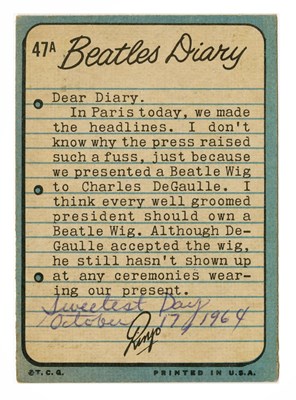 47A Beatles Diary
Dear Diary.
In Paris today, we made
the headlines. I don't
know why the press raised
such a fuss, just because
we presented a Beatle Wig
to Charles DeGaulle. I
think every well groomed
president should own a
Beatle Wig. Although De-
Gaulle accepted the wig,
he still hasn't shown up
at any ceremonies wear-
ing our present.
Sweetest Day
October 17/1964
Ringo
©T.C.G. PRINTED IN U.S.A.